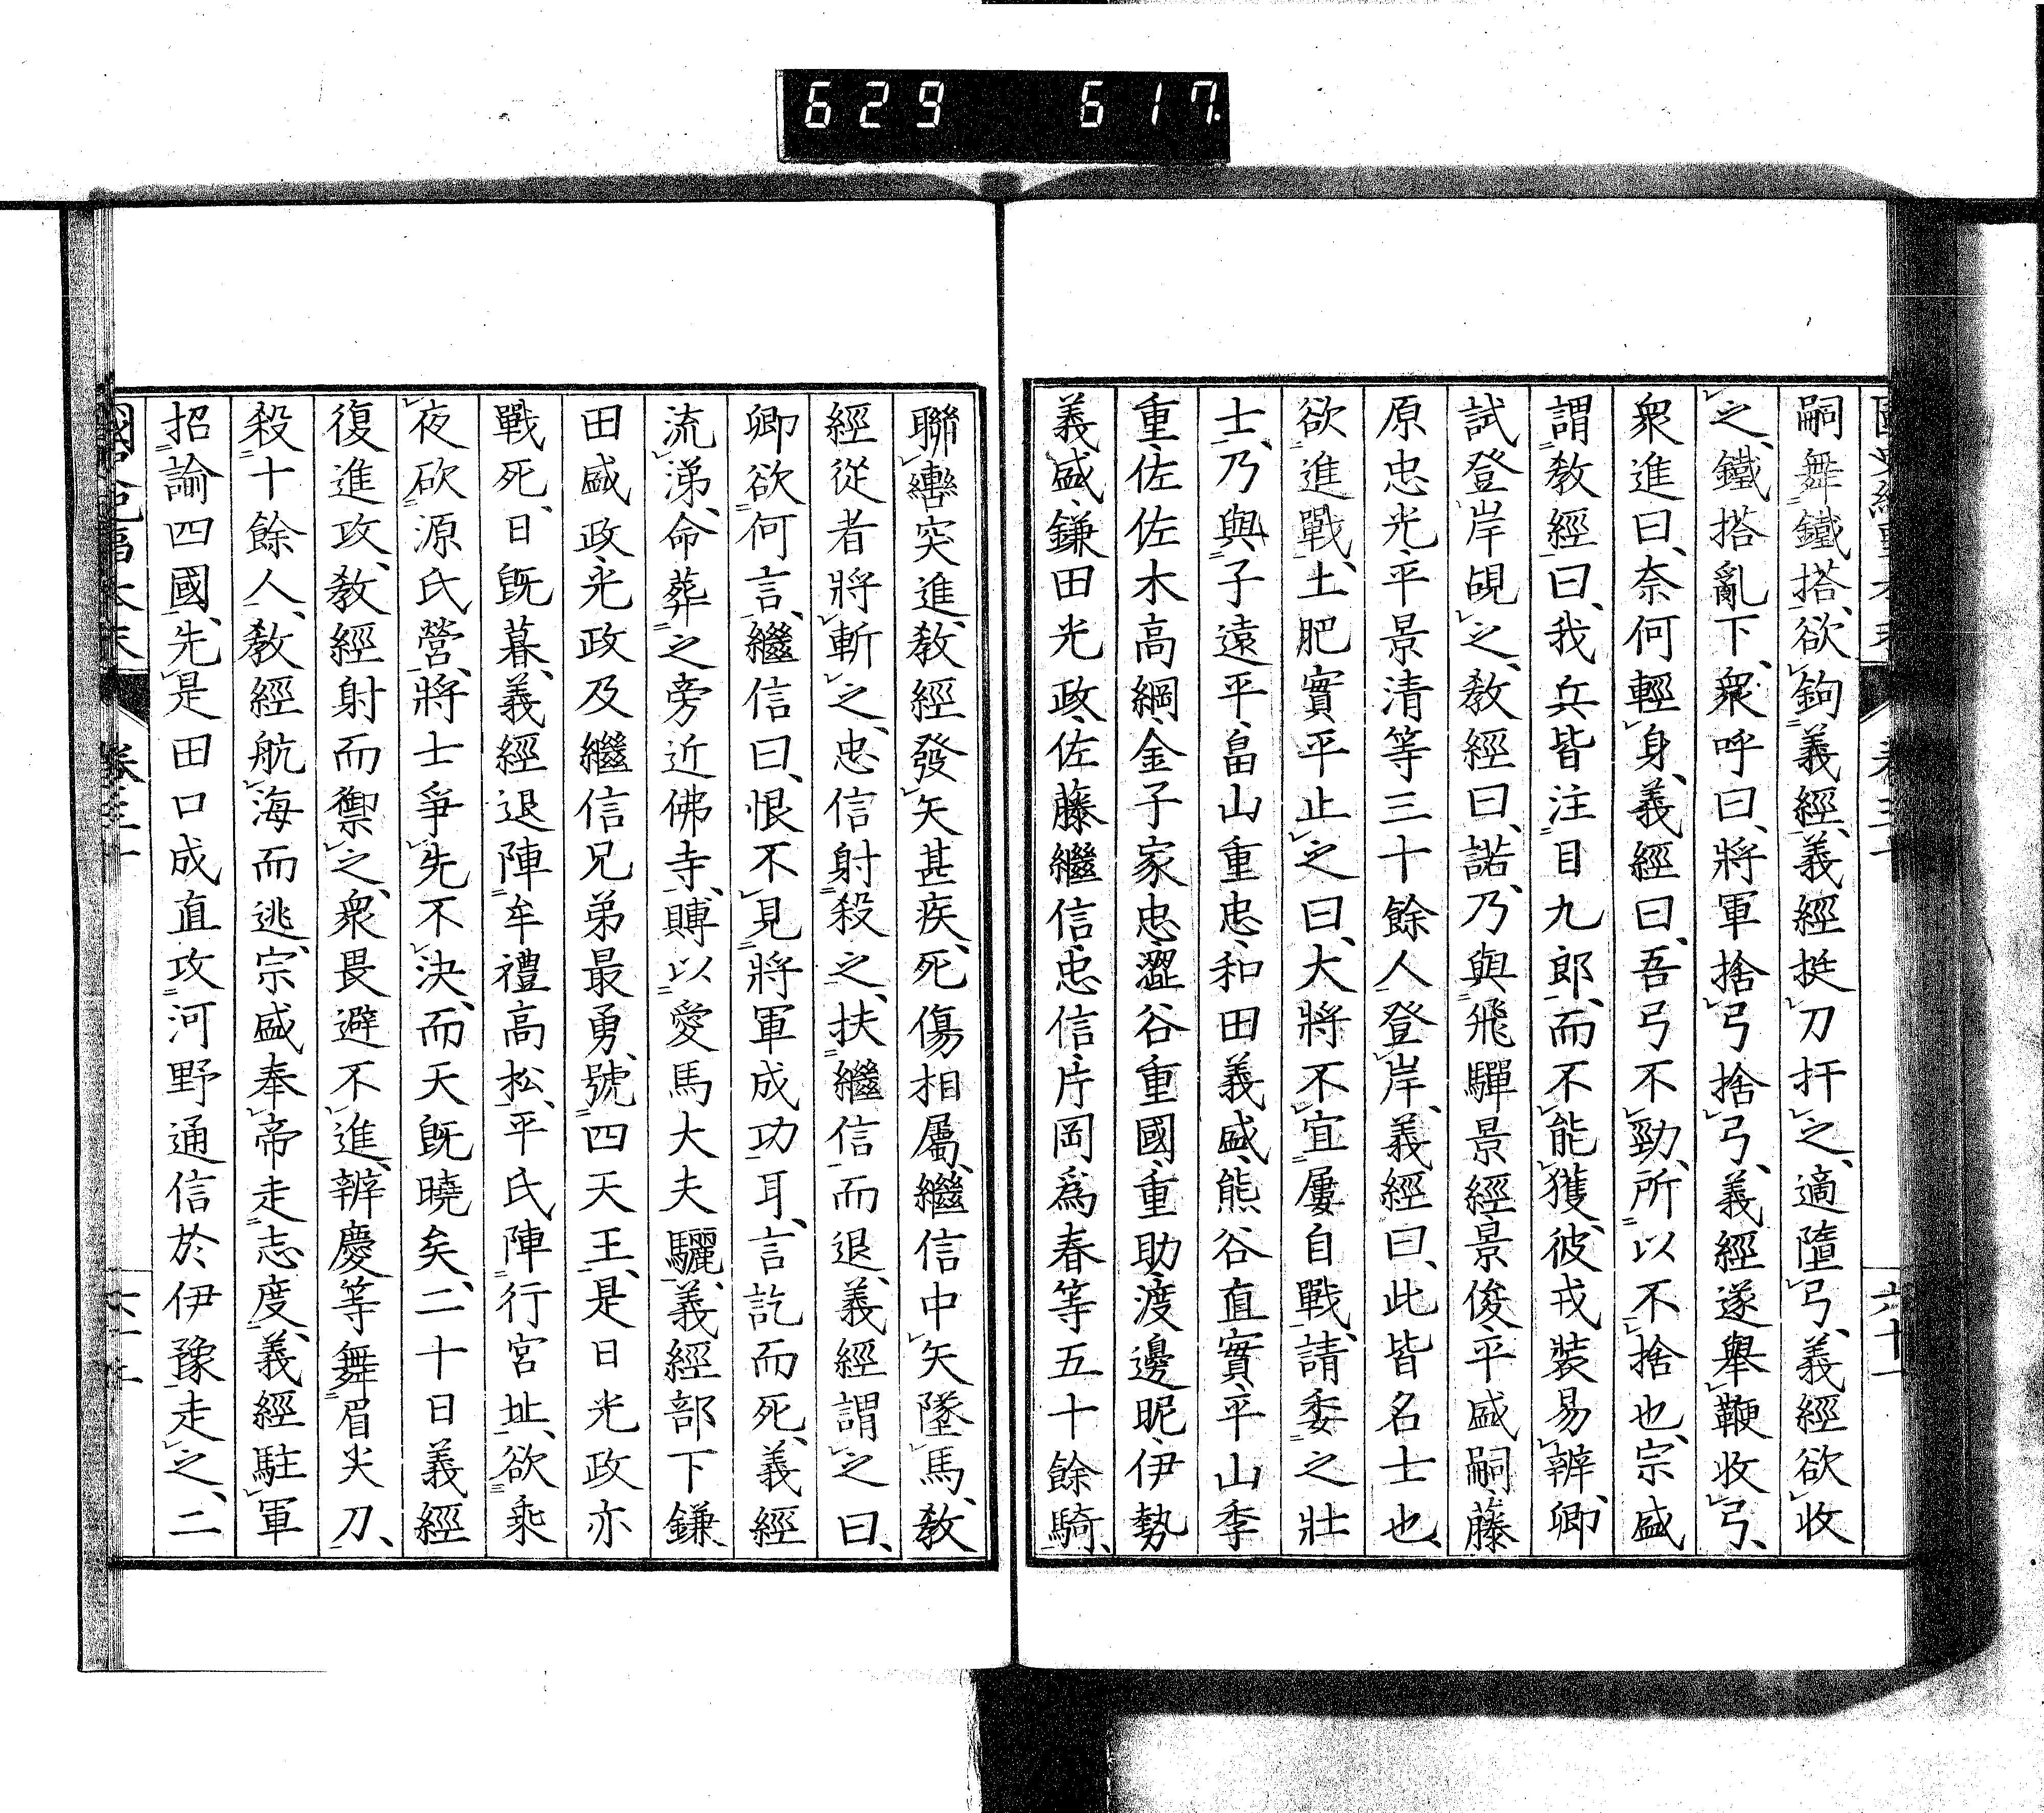 629 617
嗣舞鐵搭、欲鉤義經、義經挺刀扞之、適墮弓、義經欲收
之、鐵搭亂下、衆呼曰、將軍捨弓捨弓、義經遂擧鞭收弓、
衆進曰、奈何輕身、義經曰、吾弓不勁、所以不捨也、宗盛
謂敎經曰、我兵皆注目九郎、而不能獲、彼戎裝易辨、卿
試登岸覘之、敎經曰、諾、乃與飛驒景經、景俊、平盛嗣、藤
原忠光、平景清等三十餘人登岸、義經曰、此皆名士也、
欲進戰、土肥實平止之曰、大將不宜屢自戰、請委之壯
士、乃與子遠平、畠山重忠、和田義盛、熊谷直實、平山季
重、佐佐木高綱、金子家忠、澀谷重國、重助、渡邊昵、伊勢
義盛、鎌田光政、佐藤繼信、忠信、片岡爲春等五十餘騎、
聯轡突進、敎經發矢甚疾、死傷相屬、繼信中矢墜馬、敎
經從者將斬之、忠信射殺之、扶繼信而退、義經謂之曰、
卿欲何言、繼信曰、恨不見將軍成功耳、言訖而死、義經
流涕、命葬之旁近佛寺、賻以愛馬大夫驪、義經部下鎌
田盛政、光政及繼信兄弟最勇、號四天王、是日光政亦
戰死、日既暮、義經退陣牟禮高松、平氏陣行宮址、欲乘
夜砍源氏營、將士爭先不決、而天既曉矣、二十日義經
復進攻、敎經射而禦之、衆畏避不進、辨慶等舞眉尖刀、
殺十餘人、敎經航海而逃、宗盛奉帝走志度、義經駐軍
招諭四國、先是田口成直攻河野通信於伊豫走之、二